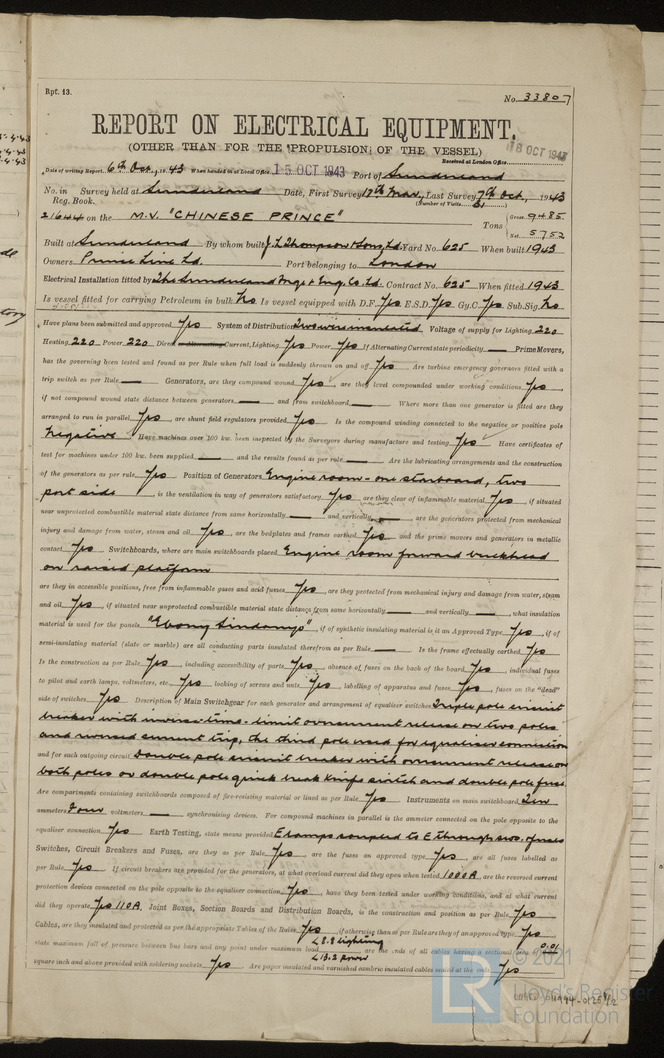 Rpt. 13.
No. 33807
REPORT ON ELECTRICAL EQUIPMENT.
(OTHER THAN FOR THE PROPULSION OF THE VESSEL)
18 OCT 1943
Received at London Office
Date of writing Report 6th Oct. 1943 When handed in at Local Office 15 OCT 1943 Port of Sunderland
No. in Survey held at Sunderland Date, First Survey 17th Mar, Last Survey 7th Oct, 1943
Reg. Book. (Number of Visits 31)
21644 on the M.V. "CHINESE PRINCE" Tons Gross 9485
Net 5752
Built at Sunderland By whom built J. L. Thompson & Sons, Ld. Yard No. 625 When built 1943
Owners Prince Line Ld. Port belonging to London
Electrical Installation fitted by The Sunderland Forge & Eng. Co. Ld. Contract No. 625 When fitted 1943
Is vessel fitted for carrying Petroleum in bulk No Is vessel equipped with D.F. Yes E.S.D. Yes Gy.C. Yes Sub.Sig. No
Have plans been submitted and approved Yes System of Distribution Two wire insulated Voltage of supply for Lighting 220
Heating 220 Power 220 Direct or Alternating Current, Lighting Yes Power Yes If Alternating Current state periodicity — Prime Movers,
has the governing been tested and found as per Rule when full load is suddenly thrown on and off Yes Are turbine emergency governors fitted with a
trip switch as per Rule — Generators, are they compound wound Yes, are they level compounded under working conditions Yes,
if not compound wound state distance between generators — and from switchboard — Where more than one generator is fitted are they
arranged to run in parallel Yes, are shunt field regulators provided Yes Is the compound winding connected to the negative or positive pole
Negative Have machines over 100 kw. been inspected by the Surveyors during manufacture and testing Yes Have certificates of
test for machines under 100 kw. been supplied — and the results found as per rule — Are the lubricating arrangements and the construction
of the generators as per rule Yes Position of Generators Engine room - one starboard, two
port side, is the ventilation in way of generators satisfactory Yes are they clear of inflammable material Yes, if situated
near unprotected combustible material state distance from same horizontally — and vertically —, are the generators protected from mechanical
injury and damage from water, steam and oil Yes, are the bedplates and frames earthed Yes and the prime movers and generators in metallic
contact Yes Switchboards, where are main switchboards placed Engine room forward bulkhead
on raised platform
are they in accessible positions, free from inflammable gases and acid fumes Yes, are they protected from mechanical injury and damage from water, steam
and oil Yes, if situated near unprotected combustible material state distance from same horizontally — and vertically —, what insulation
material is used for the panels "Ebony Sindanyo", if of synthetic insulating material is it an Approved Type Yes, if of
semi-insulating material (slate or marble) are all conducting parts insulated therefrom as per Rule — Is the frame effectually earthed Yes
Is the construction as per Rule Yes, including accessibility of parts Yes, absence of fuses on the back of the board Yes, individual fuses
to pilot and earth lamps, voltmeters, etc. Yes, locking of screws and nuts Yes, labelling of apparatus and fuses Yes, fuses on the "dead"
side of switches Yes Description of Main Switchgear for each generator and arrangement of equaliser switches Triple pole circuit
breaker with inverse-time-limit overcurrent release on two poles
and reversed current trip, the third pole used for equaliser connection
and for each outgoing circuit Double pole circuit breaker with overcurrent release on
both poles or double pole quick break knife switch and double pole fuse.
Are compartments containing switchboards composed of fire-resisting material or lined as per Rule Yes Instruments on main switchboard Ten
ammeters Four voltmeters — synchronising devices. For compound machines in parallel is the ammeter connected to the pole opposite to the
equaliser connection Yes Earth Testing, state means provided E lamps coupled to E through sws. & fuses
Switches, Circuit Breakers and Fuses, are they as per Rule Yes, are the fuses an approved type Yes, are all fuses labelled as
per Rule Yes If circuit breakers are provided for the generators, at what overload current did they open when tested 1000A, are the reversed current
protection devices connected on the pole opposite to the equaliser connection Yes, have they been tested under working conditions, and at what current
did they operate Yes 110A. Joint Boxes, Section Boards and Distribution Boards, is the construction and position as per Rule Yes
Cables, are they insulated and protected as per the appropriate Tables of the Rules Yes, if otherwise than as per Rule are they of an approved type Yes,
state maximum fall of pressure between bus bars and any point under maximum load L 8.8 lighting, are the ends of all cables having a sectional area of 0.01
L 13.2 power
square inch and above provided with soldering sockets Yes Are paper insulated and varnished cambric insulated cables sealed at the ends Yes
LR
© 2021
Lloyd's Register
Foundation